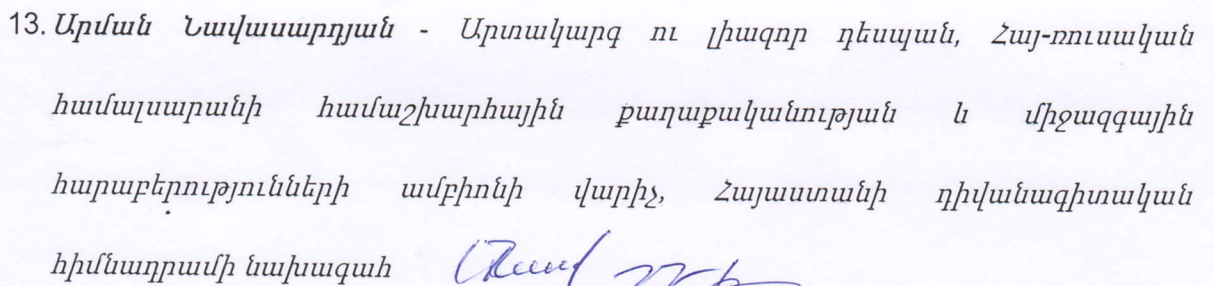 13. Արման Նավասարդյան - Արտակարգ ու լիազոր դեսպան, Հայ-ռուսական
համալսարանի համաշխարհային քաղաքականության և միջազգային
հարաբերությունների ամբիոնի վարիչ, Հայաստանի դիվանագիտական
հիմնադրամի նախագահ